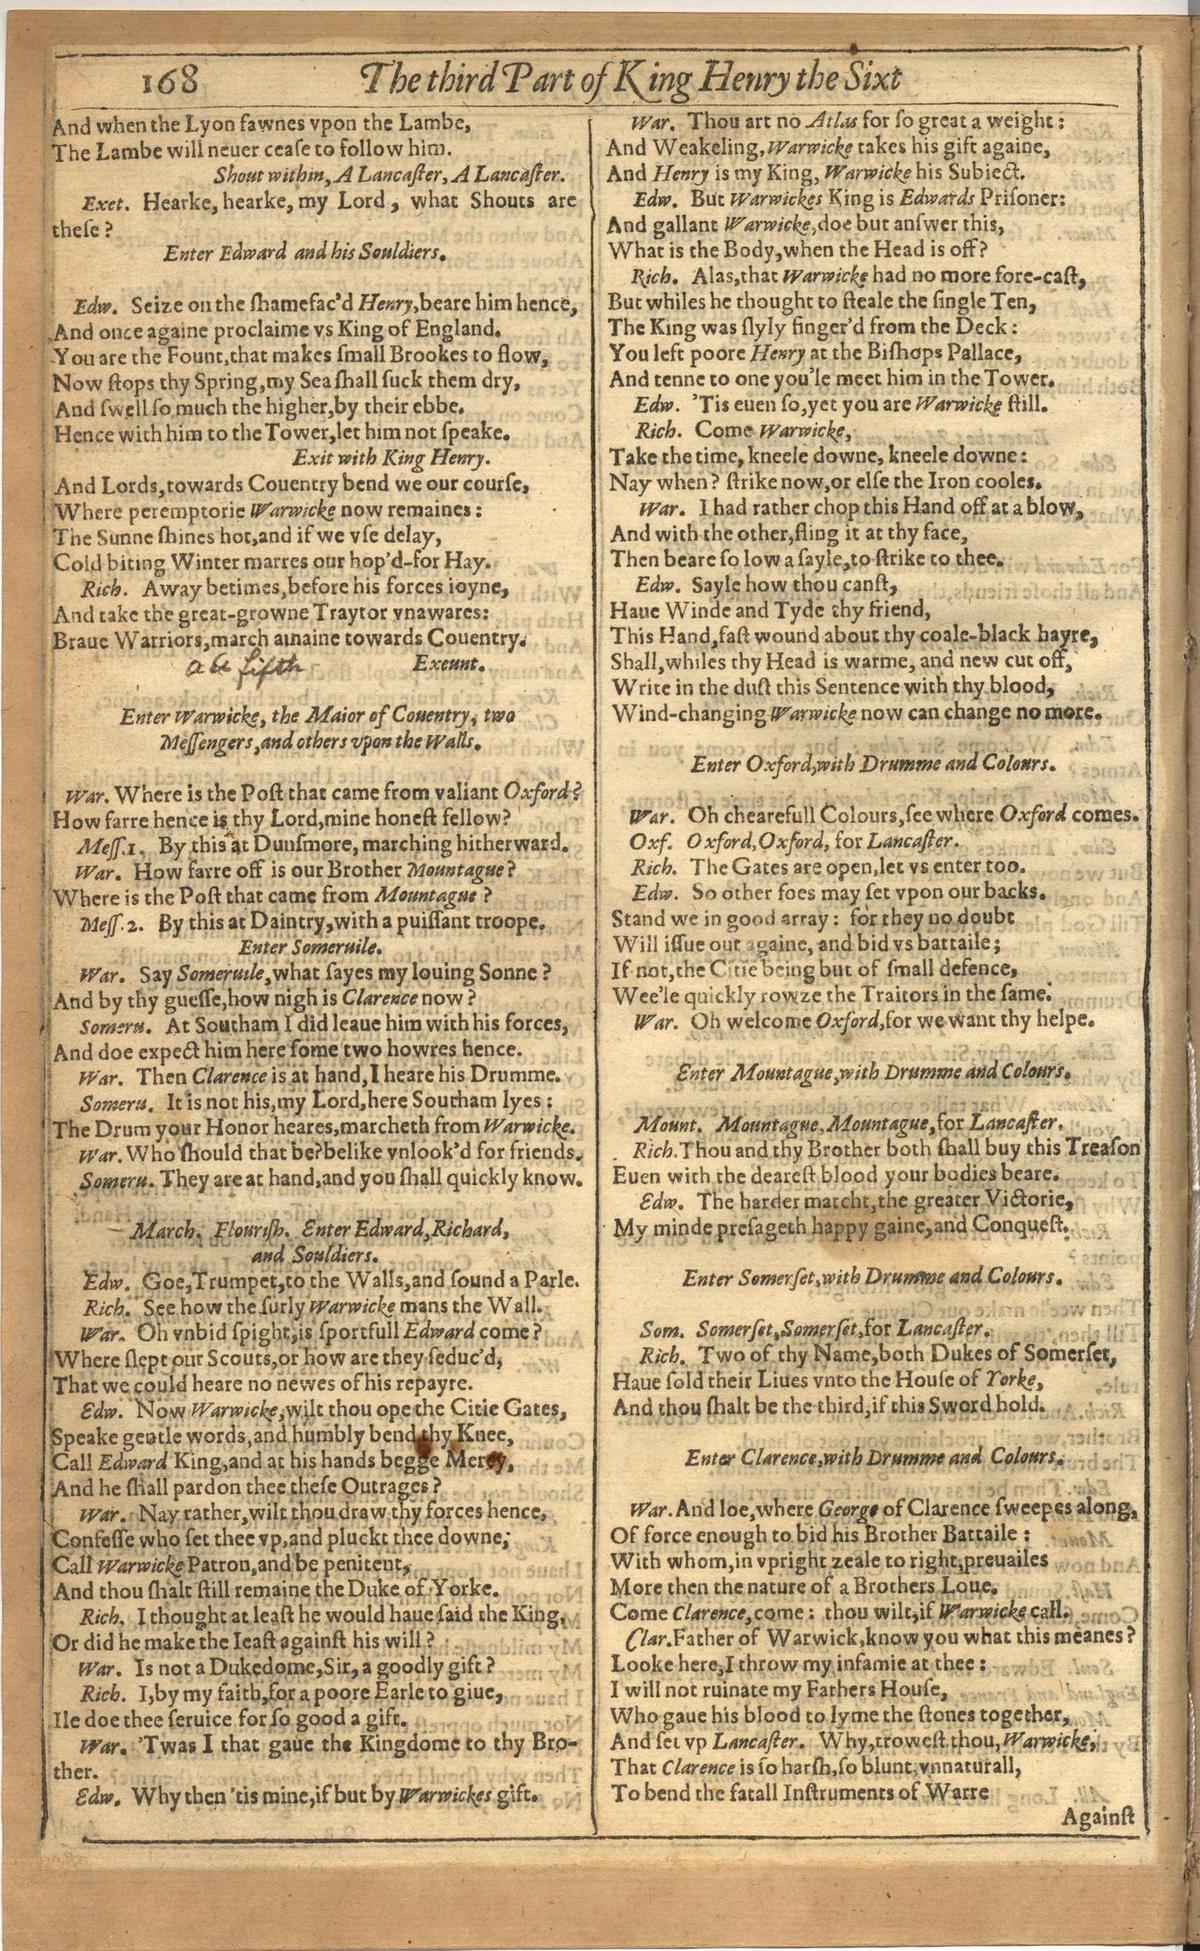 168
The third Part of King Henry the Sixt
And when the Lyon fawnes vpon the Lambe,
The Lambe will neuer ceaſe to follow him.
Shout within, A Lancaſter, A Lancaſter.
Exet. Hearke, hearke, my Lord, what Shouts are
theſe?
Enter Edward and his Souldiers.
Edw. Seize on the ſhamefac'd Henry, beare him hence,
And once againe proclaime vs King of England.
You are the Fount, that makes ſmall Brookes to flow,
Now ſtops thy Spring, my Sea ſhall ſuck them dry,
And ſwell ſo much the higher, by their ebbe.
Hence with him to the Tower, let him not ſpeake.
Exit with King Henry.
And Lords, towards Couentry bend we our courſe,
Where peremptorie Warwicke now remaines:
The Sunne ſhines hot, and if we vſe delay,
Cold biting Winter marres our hop'd-for Hay.
Rich. Away betimes, before his forces ioyne,
And take the great-growne Traytor vnawares:
Braue Warriors, march amaine towards Couentry.
fifth
Exeunt.
Enter Warwicke, the Maior of Couentry, two
Meſſengers, and others vpon the Walls.
War. Where is the Poſt that came from valiant Oxford?
How farre hence is thy Lord, mine honeſt fellow?
Meſſ. 1. By this at Dunſmore, marching hitherward.
War. How farre off is our Brother Mountague?
Where is the Poſt that came from Mountague?
Meſſ. 2. By this at Daintry, with a puiſſant troope.
Enter Someruile.
War. Say Someruile, what ſayes my louing Sonne?
And by thy gueſſe, how nigh is Clarence now?
Someru. At Southam I did leaue him with his forces,
And doe expect him here ſome two howres hence.
War. Then Clarence is at hand, I heare his Drumme.
Someru. It is not his, my Lord, here Southam lyes:
The Drum your Honor heares, marcheth from Warwicke.
War. Who ſhould that be? belike vnlook'd for friends.
Someru. They are at hand, and you ſhall quickly know.
March. Flouriſh. Enter Edward, Richard,
and Souldiers.
Edw. Goe, Trumpet, to the Walls, and ſound a Parle.
Rich. See how the ſurly Warwicke mans the Wall.
War. Oh vnbid ſpight, is ſportfull Edward come?
Where ſlept our Scouts, or how are they ſeduc'd,
That we could heare no newes of his repayre.
Edw. Now Warwicke, wilt thou ope the Citie Gates,
Speake gentle words, and humbly bend thy Knee,
Call Edward King, and at his hands begge Mercy,
And he ſhall pardon thee theſe Outrages?
War. Nay rather, wilt thou draw thy forces hence,
Confeſſe who ſet thee vp, and pluckt thee downe;
Call Warwicke Patron, and be penitent,
And thou ſhalt ſtill remaine the Duke of Yorke.
Rich. I thought at leaſt he would haue ſaid the King,
Or did he make the Ieaſt againſt his will?
War. Is not a Dukedome, Sir, a goodly gift?
Rich. I, by my faith, for a poore Earle to giue,
Ile doe thee ſeruice for ſo good a gift.
War. 'Twas I that gaue the Kingdome to thy Bro-
ther.
Edw. Why then 'tis mine, if but by Warwickes gift.
War. Thou art no Atlas for ſo great a weight:
And Weakeling, Warwicke takes his gift againe,
And Henry is my King, Warwicke his Subiect.
Edw. But Warwickes King is Edwards Priſoner:
And gallant Warwicke, doe but anſwer this,
What is the Body, when the Head is off?
Rich. Alas, that Warwicke had no more fore-caſt,
But whiles he thought to ſteale the ſingle Ten,
The King was ſlyly finger'd from the Deck:
You left poore Henry at the Biſhops Pallace,
And tenne to one you'le meet him in the Tower.
Edw. 'Tis euen ſo, yet you are Warwicke ſtill.
Rich. Come Warwicke,
Take the time, kneele downe, kneele downe:
Nay when? ſtrike now, or elſe the Iron cooles.
War. I had rather chop this Hand off at a blow,
And with the other, fling it at thy face,
Then beare ſo low a ſayle, to ſtrike to thee.
Edw. Sayle how thou canſt,
Haue Winde and Tyde thy friend,
This Hand, faſt wound about thy coale-black hayre,
Shall, whiles thy Head is warme, and new cut off,
Write in the duſt this Sentence with thy blood,
Wind-changing Warwicke now can change no more.
Enter Oxford, with Drumme and Colours.
War. Oh chearefull Colours, ſee where Oxford comes.
Oxf. Oxford, Oxford, for Lancaſter.
Rich. The Gates are open, let vs enter too.
Edw. So other foes may ſet vpon our backs.
Stand we in good array: for they no doubt
Will iſſue out againe, and bid vs battaile;
If not, the Citie being but of ſmall defence,
Wee'le quickly rowze the Traitors in the ſame.
War. Oh welcome Oxford, for we want thy helpe.
Enter Mountague, with Drumme and Colours.
Mount. Mountague, Mountague, for Lancaſter.
Rich. Thou and thy Brother both ſhall buy this Treaſon
Euen with the deareſt blood your bodies beare.
Edw. The harder matcht, the greater Victorie,
My minde preſageth happy gaine, and Conqueſt.
Enter Somerſet, with Drumme and Colours.
Som. Somerſet, Somerſet, for Lancaſter.
Rich. Two of thy Name, both Dukes of Somerſet,
Haue ſold their Liues vnto the Houſe of Yorke,
And thou ſhalt be the third, if this Sword hold.
Enter Clarence, with Drumme and Colours.
War. And loe, where George of Clarence ſweepes along,
Of force enough to bid his Brother Battaile:
With whom, in vpright zeale to right, preuailes
More then the nature of a Brothers Loue.
Come Clarence, come: thou wilt, if Warwicke call.
Clar. Father of Warwick, know you what this meanes?
Looke here, I throw my infamie at thee:
I will not ruinate my Fathers Houſe,
Who gaue his blood to lyme the ſtones together,
And ſet vp Lancaſter. Why, troweſt thou, Warwicke,
That Clarence is ſo harſh, ſo blunt, vnnaturall,
To bend the fatall Inſtruments of Warre
Againſt